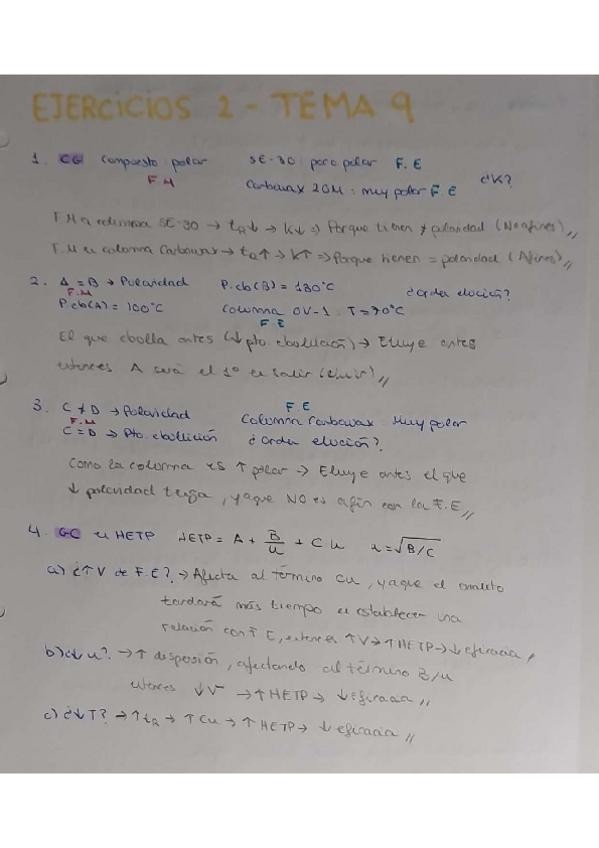 EJERCICIOS 2 - TEMA 9
1. CG compuesto polar SE-30 poco polar F.E
F.M Carbowax 20M: muy polar F.E ¿K?
F.M en columna SE-30 → tR↓ → K↓ => Porque tienen ≠ polaridad (No afines) //
F.M en columna Carbowax → tR↑ → K↑ => Porque tienen = polaridad (Afines) //
2. A = B → Polaridad P.eb(B) = 180°C ¿orden elución?
F.M
P.eb(A) = 100°C Columna OV-1 T = 70°C
F.E
El que ebolla antes (↓ pto. ebullición) → Eluye antes
entonces A será el 1º en salir (eluir) //
3. C ≠ D → Polaridad F.E Columna Carbowax Muy polar
F.M
C = D → Pto. ebullición ¿orden elución?
Como la columna es ↑ polar → Eluye antes el que
↓ polaridad tenga, ya que NO es afín con la F.E //
4. GC u HETP HETP = A + B/u + C u u = √B/C
a) ¿↑ V de F.E? → Afecta al término Cu, ya que el analito
tardará más tiempo en establecer una
relación con F.E, entonces ↑V → ↑HETP → ↓ eficacia //
b) ¿↓ u? → ↑ dispersión, afectando al término B/u
entonces ↓V → ↑ HETP → ↓ eficacia //
c) ¿↓T? → ↑tR → ↑ Cu → ↑ HETP → ↓ eficacia //